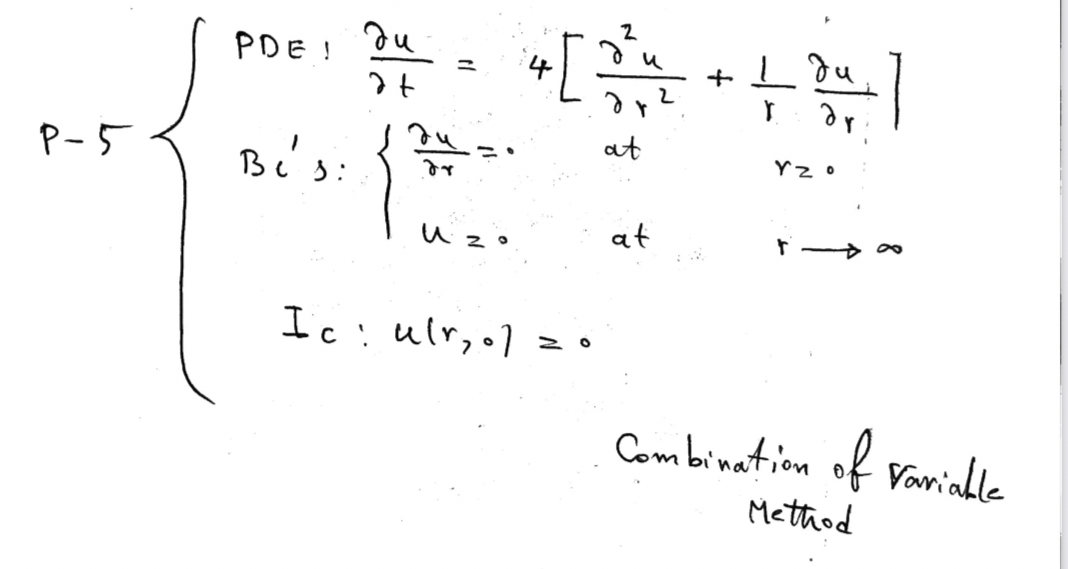 PDE: ∂u/∂t = 4[∂²u/∂r² + 1/r ∂u/∂r]
P-5
Bc's: { ∂u/∂r = 0 at r = 0
u = 0 at r → ∞
Ic: u(r,0) = 0
Combination of variable
Method